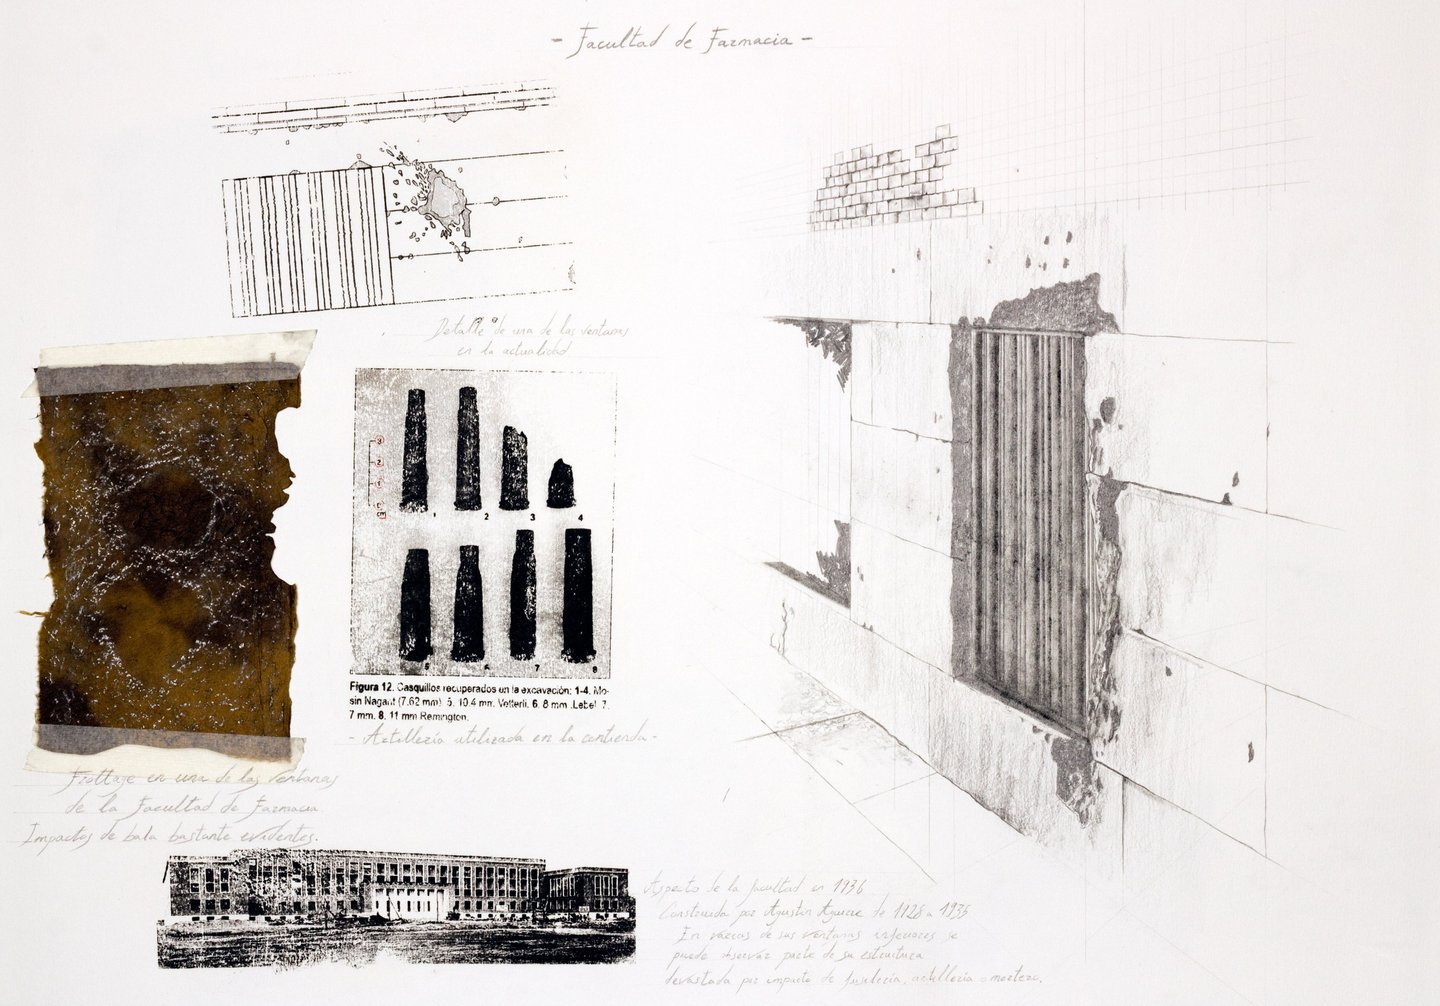 - Facultad de Farmacia -
Detalle de una de las ventanas
en la actualidad
3
2
1
1 2 3 4
5 6 7 8
Figura 12. Casquillos recuperados en la excavación: 1-4. Mo-
sin Nagant (7.62 mm) 5. 10.4 mm. Vetterli. 6. 8 mm .Lebel 7.
7 mm. 8. 11 mm Remington.
- Artillería utilizada en la contienda -
Frottage en una de las ventanas
de la Facultad de Farmacia
Impactos de bala bastante evidentes.
Aspecto de la facultad en 1936
Construida por Agustín Aguirre de 1928 a 1936
En varias de sus ventanas inferiores se
puede observar parte de su estructura
devastada por impacto de fusilería, artillería o mortero.